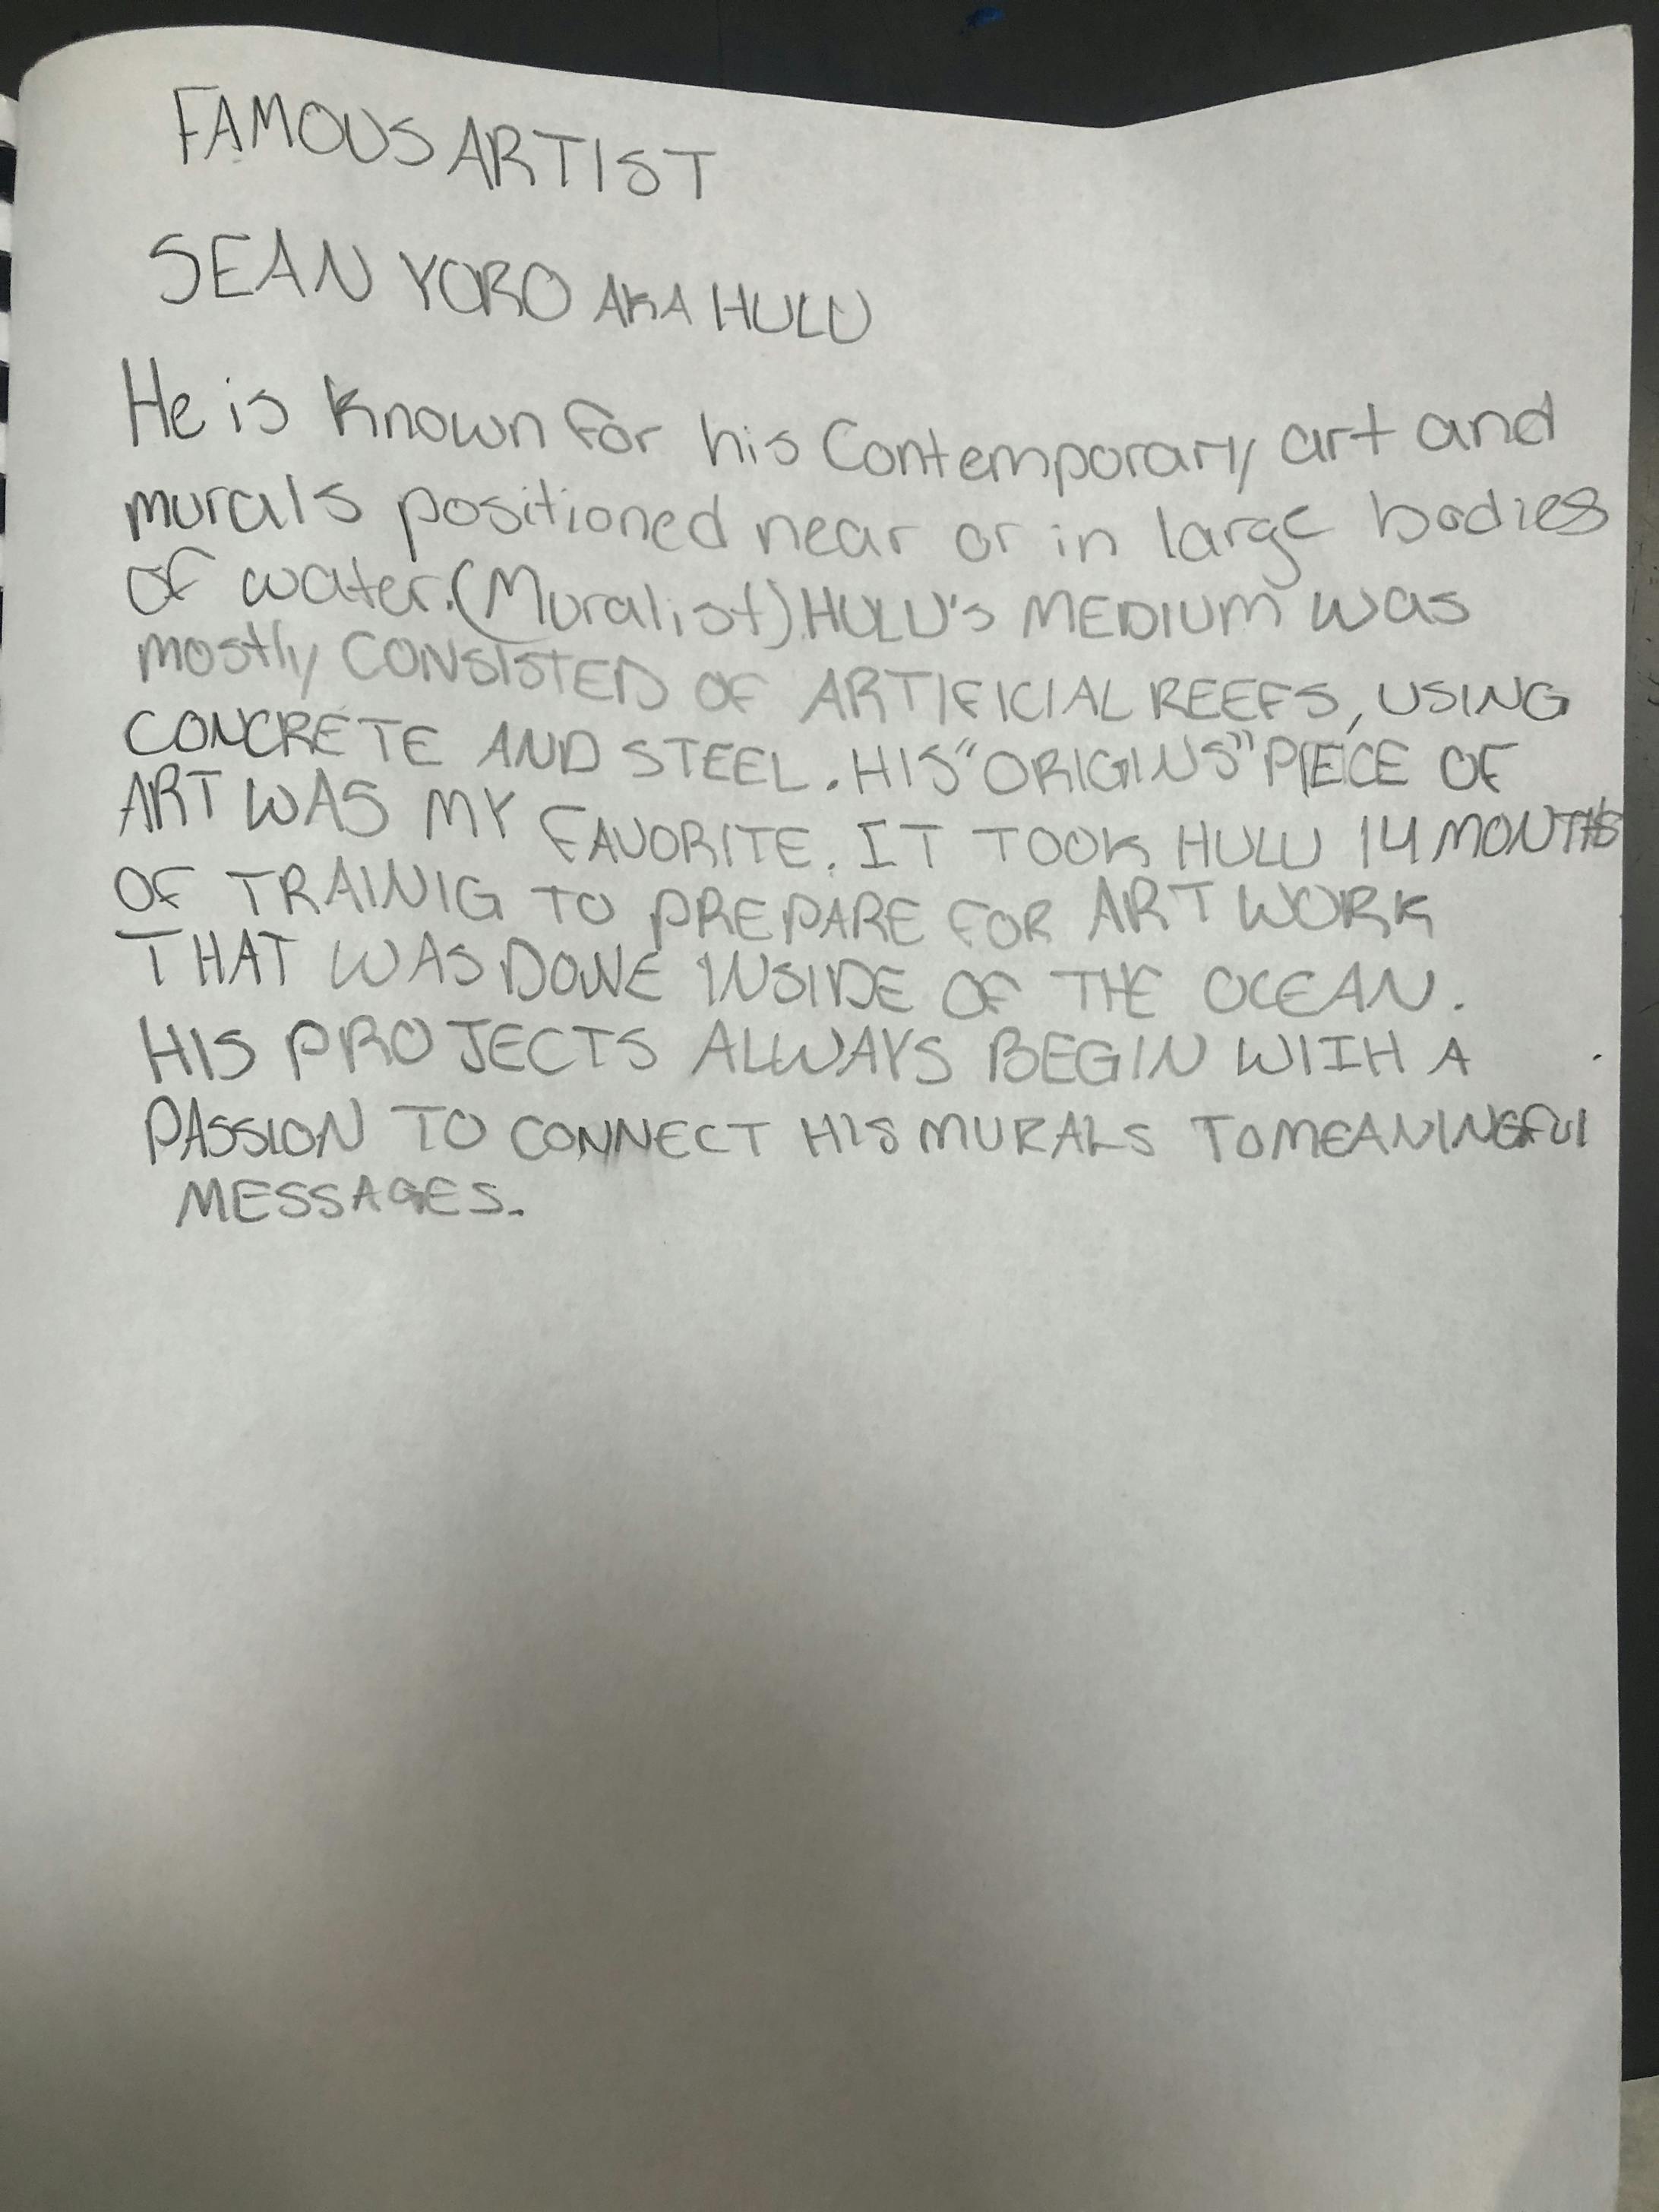 FAMOUS ARTIST
SEAN YORO AKA HULU
He is known for his Contemporary art and
murals positioned near or in large bodies
of water. (Muralist) HULU's MEDIUM was
mostly CONSISTED OF ARTIFICIAL REEFS, USING
CONCRETE AND STEEL. HIS "ORIGINS" PIECE OF
ART WAS MY FAVORITE. IT TOOK HULU 14 MONTHS
OF TRAINIG TO PREPARE FOR ART WORK
THAT WAS DONE INSIDE OF THE OCEAN.
HIS PROJECTS ALWAYS BEGIN WITH A
PASSION TO CONNECT HIS MURALS TO MEANINGFUl
MESSAGES.